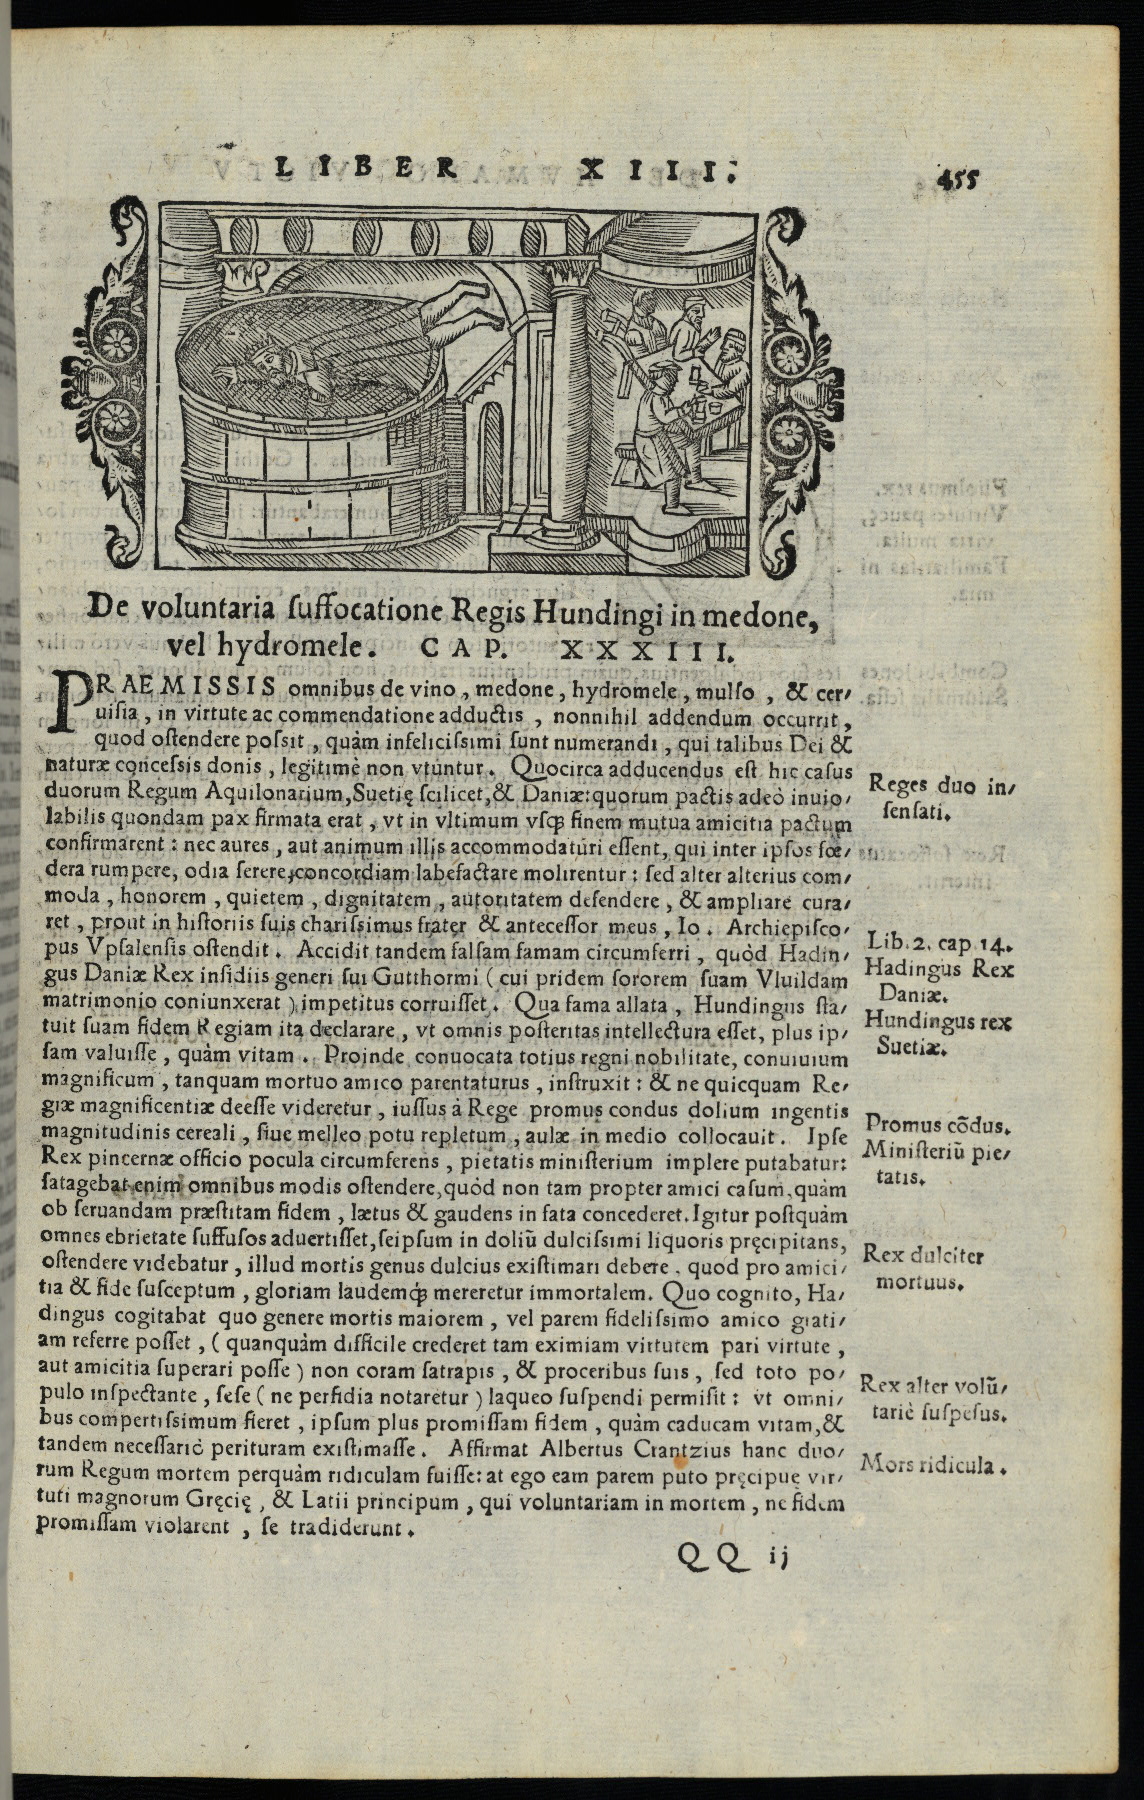 LIBER XIII.
455
De voluntaria ſuffocatione Regis Hundingi in medone,
vel hydromele. CAP. XXXIII.
PRAEMISSIS omnibus de vino, medone, hydromele, mulſo, & cer-
uiſia, in virtute ac commendatione adductis, nonnihil addendum occurrit,
quod oſtendere poſsit, quàm infeliciſsimi ſunt numerandi, qui talibus Dei &
naturæ conceſsis donis, legitimè non vtuntur. Quocirca adducendus eſt hic caſus
duorum Regum Aquilonarium, Suetię ſcilicet, & Daniæ: quorum pactis adeò inuio-
labilis quondam pax firmata erat, vt in vltimum vſqꝫ finem mutua amicitia pactum
confirmarent: nec aures, aut animum illis accommodaturi eſſent, qui inter ipſos fœ-
dera rumpere, odia ſerere, concordiam labefactare molirentur: ſed alter alterius com-
moda, honorem, quietem, dignitatem, autoritatem defendere, & ampliare cura-
ret, prout in hiſtoriis ſuis chariſsimus frater & anteceſſor meus, Io. Archiepiſco-
pus Vpſalenſis oſtendit. Accidit tandem falſam famam circumferri, quòd Hadin-
gus Daniæ Rex inſidiis generi ſui Gutthormi (cui pridem ſororem ſuam Vluildam
matrimonio coniunxerat) impetitus corruiſſet. Qua fama allata, Hundingus ſta-
tuit ſuam fidem Regiam ita declarare, vt omnis poſteritas intellectura eſſet, plus ip-
ſam valuiſſe, quàm vitam. Proinde conuocata totius regni nobilitate, conuiuium
magnificum, tanquam mortuo amico parentaturus, inſtruxit: & ne quicquam Re-
giæ magnificentiæ deeſſe videretur, iuſſus à Rege promus condus dolium ingentis
magnitudinis cereali, ſiue melleo potu repletum, aulæ in medio collocauit. Ipſe
Rex pincernæ officio pocula circumferens, pietatis miniſterium implere putabatur:
ſatagebat enim omnibus modis oſtendere, quòd non tam propter amici caſum, quàm
ob ſeruandam præſtitam fidem, lætus & gaudens in fata concederet. Igitur poſtquàm
omnes ebrietate ſuffuſos aduertiſſet, ſeipſum in doliũ dulciſsimi liquoris pręcipitans,
oſtendere videbatur, illud mortis genus dulcius exiſtimari debere, quod pro amici-
tia & fide ſuſceptum, gloriam laudemqꝫ́ mereretur immortalem. Quo cognito, Ha-
dingus cogitabat quo genere mortis maiorem, vel parem fideliſsimo amico grati-
am referre poſſet, (quanquàm difficile crederet tam eximiam virtutem pari virtute,
aut amicitia ſuperari poſſe) non coram ſatrapis, & proceribus ſuis, ſed toto po-
pulo inſpectante, ſeſe (ne perfidia notaretur) laqueo ſuſpendi permiſit: vt omni-
bus compertiſsimum fieret, ipſum plus promiſſam fidem, quàm caducam vitam, &
tandem neceſſariò perituram exiſtimaſſe. Affirmat Albertus Crantzius hanc duo-
rum Regum mortem perquàm ridiculam fuiſſe: at ego eam parem puto pręcipuę vir-
tuti magnorum Gręcię, & Latii principum, qui voluntariam in mortem, ne fidem
promiſſam violarent, ſe tradiderunt.
QQ ij
Reges duo in-
ſenſati.
Lib. 2. cap. 14.
Hadingus Rex
Daniæ.
Hundingus rex
Suetiæ.
Promus cõdus.
Miniſteriũ pie-
tatis.
Rex dulciter
mortuus.
Rex alter volũ-
tariè ſuſpeſus.
Mors ridicula.